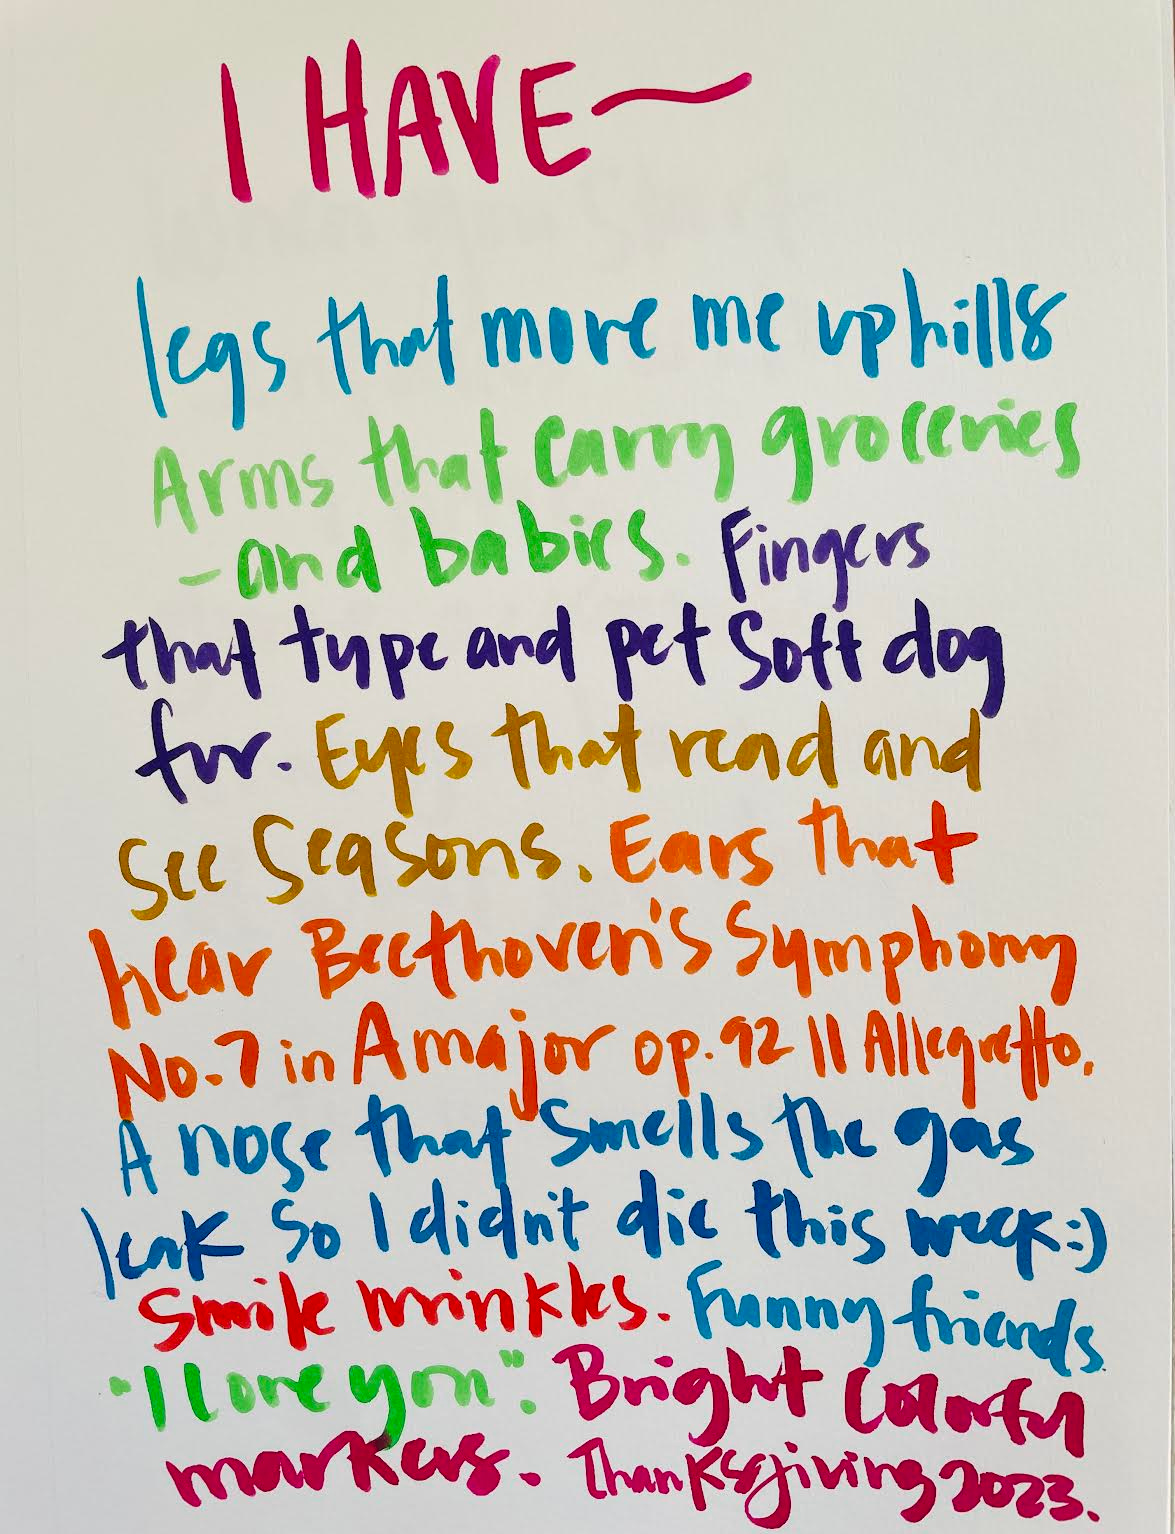 I HAVE~
legs that move me up hills
Arms that carry groceries
- and babies. Fingers
that type and pet soft dog
fur. Eyes that read and
See Seasons. Ears that
hear Beethoven's Symphony
No. 7 in A major op. 92 II Allegretto.
A nose that smells the gas
leak so I didn't die this week:)
Smile wrinkles. Funny friends.
"I love you". Bright colorful
markers. Thanksgiving 2023.